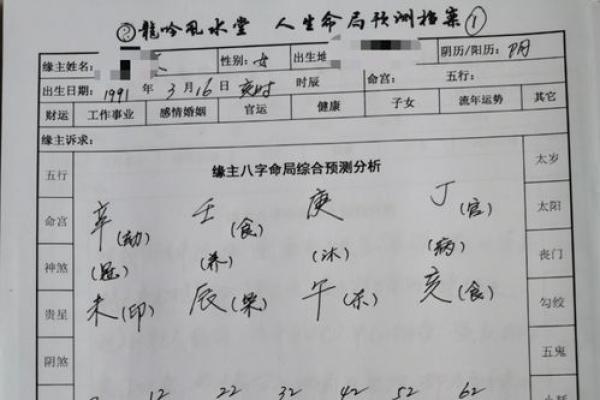 ②龍吟风水堂 人生命局预测档案①
缘主姓名： 性别：女 出生地 阴历/阳历：阴
出生日期：1991 年 3 月 16 日 亥时 时辰 命宫： 五行：
财运 工作事业 感情婚姻 官运 健康 子女 流年运势 其它
缘主诉求：
五行 缘主八字命局综合预测分析 太岁
命宫 辛(劫) 壬(食) 庚 丁(官) 太阳
神煞 (冠) (养) (沐) (病) 丧门
贵星 未(印) 辰(枭) 午 亥(食) 勾绞
阴煞 五鬼
12 22 32 42 52 62